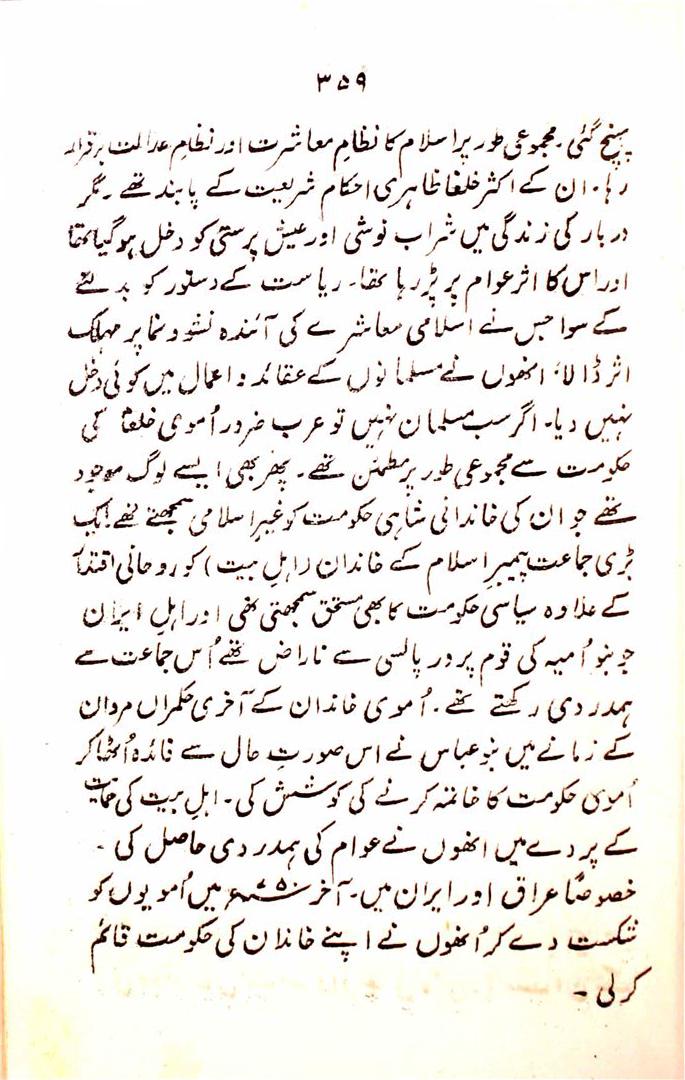 ۳۵۹
پہنچ گئی۔ مجموعی طور پر اسلام کا نظامِ معاشرت اور نظامِ عدالت برقرار
رہا۔ ان کے اکثر خلفا ظاہری احکام شریعت کے پابند تھے۔ مگر
دربار کی زندگی میں شراب نوشی اور عیش پرستی کو دخل ہوگیا تھا
اور اس کا اثر عوام پر پڑ رہا تھا۔ ریاست کے دستور کو بدلنے
کے سوا جس نے اسلامی معاشرے کی آئندہ نشو و نما پر مہلک
اثر ڈالا، انھوں نے مسلمانوں کے عقائد و اعمال میں کوئی دخل
نہیں دیا۔ اگر سب مسلمان نہیں تو عرب ضرور اُموی خلفا کی
حکومت سے مجموعی طور پر مطمئن تھے۔ پھر بھی ایسے لوگ موجود
تھے جو ان کی خاندانی شاہی حکومت کو غیر اسلامی سمجھتے تھے ایک
بڑی جماعت پیمبرِ اسلام کے خاندان (اہلِ بیت) کو روحانی اقتدار
کے علاوہ سیاسی حکومت کا بھی مستحق سمجھتی تھی اور اہلِ ایران
جو بنو اُمیہ کی قوم پرور پالسی سے ناراض تھے اُس جماعت سے
ہمدردی رکھتے تھے۔ اُموی خاندان کے آخری حکمراں مروان
کے زمانے میں بنو عباس نے اس صورتِ حال سے فائدہ اُٹھا کر
اُموی حکومت کا خاتمہ کرنے کی کوشش کی۔ اہلِ بیت کی حمایت
کے پردے میں انھوں نے عوام کی ہمدردی حاصل کی۔
خصوصاً عراق اور ایران میں۔ آخر ۷۵۰ء میں اُمویوں کو
شکست دے کر اُنھوں نے اپنے خاندان کی حکومت قائم
کرلی۔